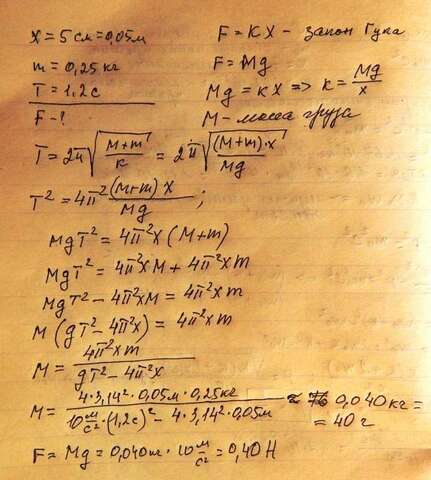 x = 5 см = 0,05 м
m = 0,25 кг
T = 1,2 с
F - ?
F = KX - закон Гука
F = Mg
Mg = KX => K = Mg/x
M - масса груза
T = 2π√((M+m)/K) = 2π√((M+m)·x/Mg)
T² = 4π² (M+m) x / Mg ;
MgT² = 4π²x (M+m)
MgT² = 4π²xM + 4π²xm
MgT² - 4π²xM = 4π²xm
M (gT² - 4π²x) = 4π²xm
M = 4π²xm / (gT² - 4π²x)
M = 4·3,14²·0,05м·0,25кг / (10 м/с²·(1,2с)² - 4·3,14²·0,05м) ≈ 0,040 кг =
= 40 г
F = Mg = 0,040кг · 10 м/с² = 0,40 Н